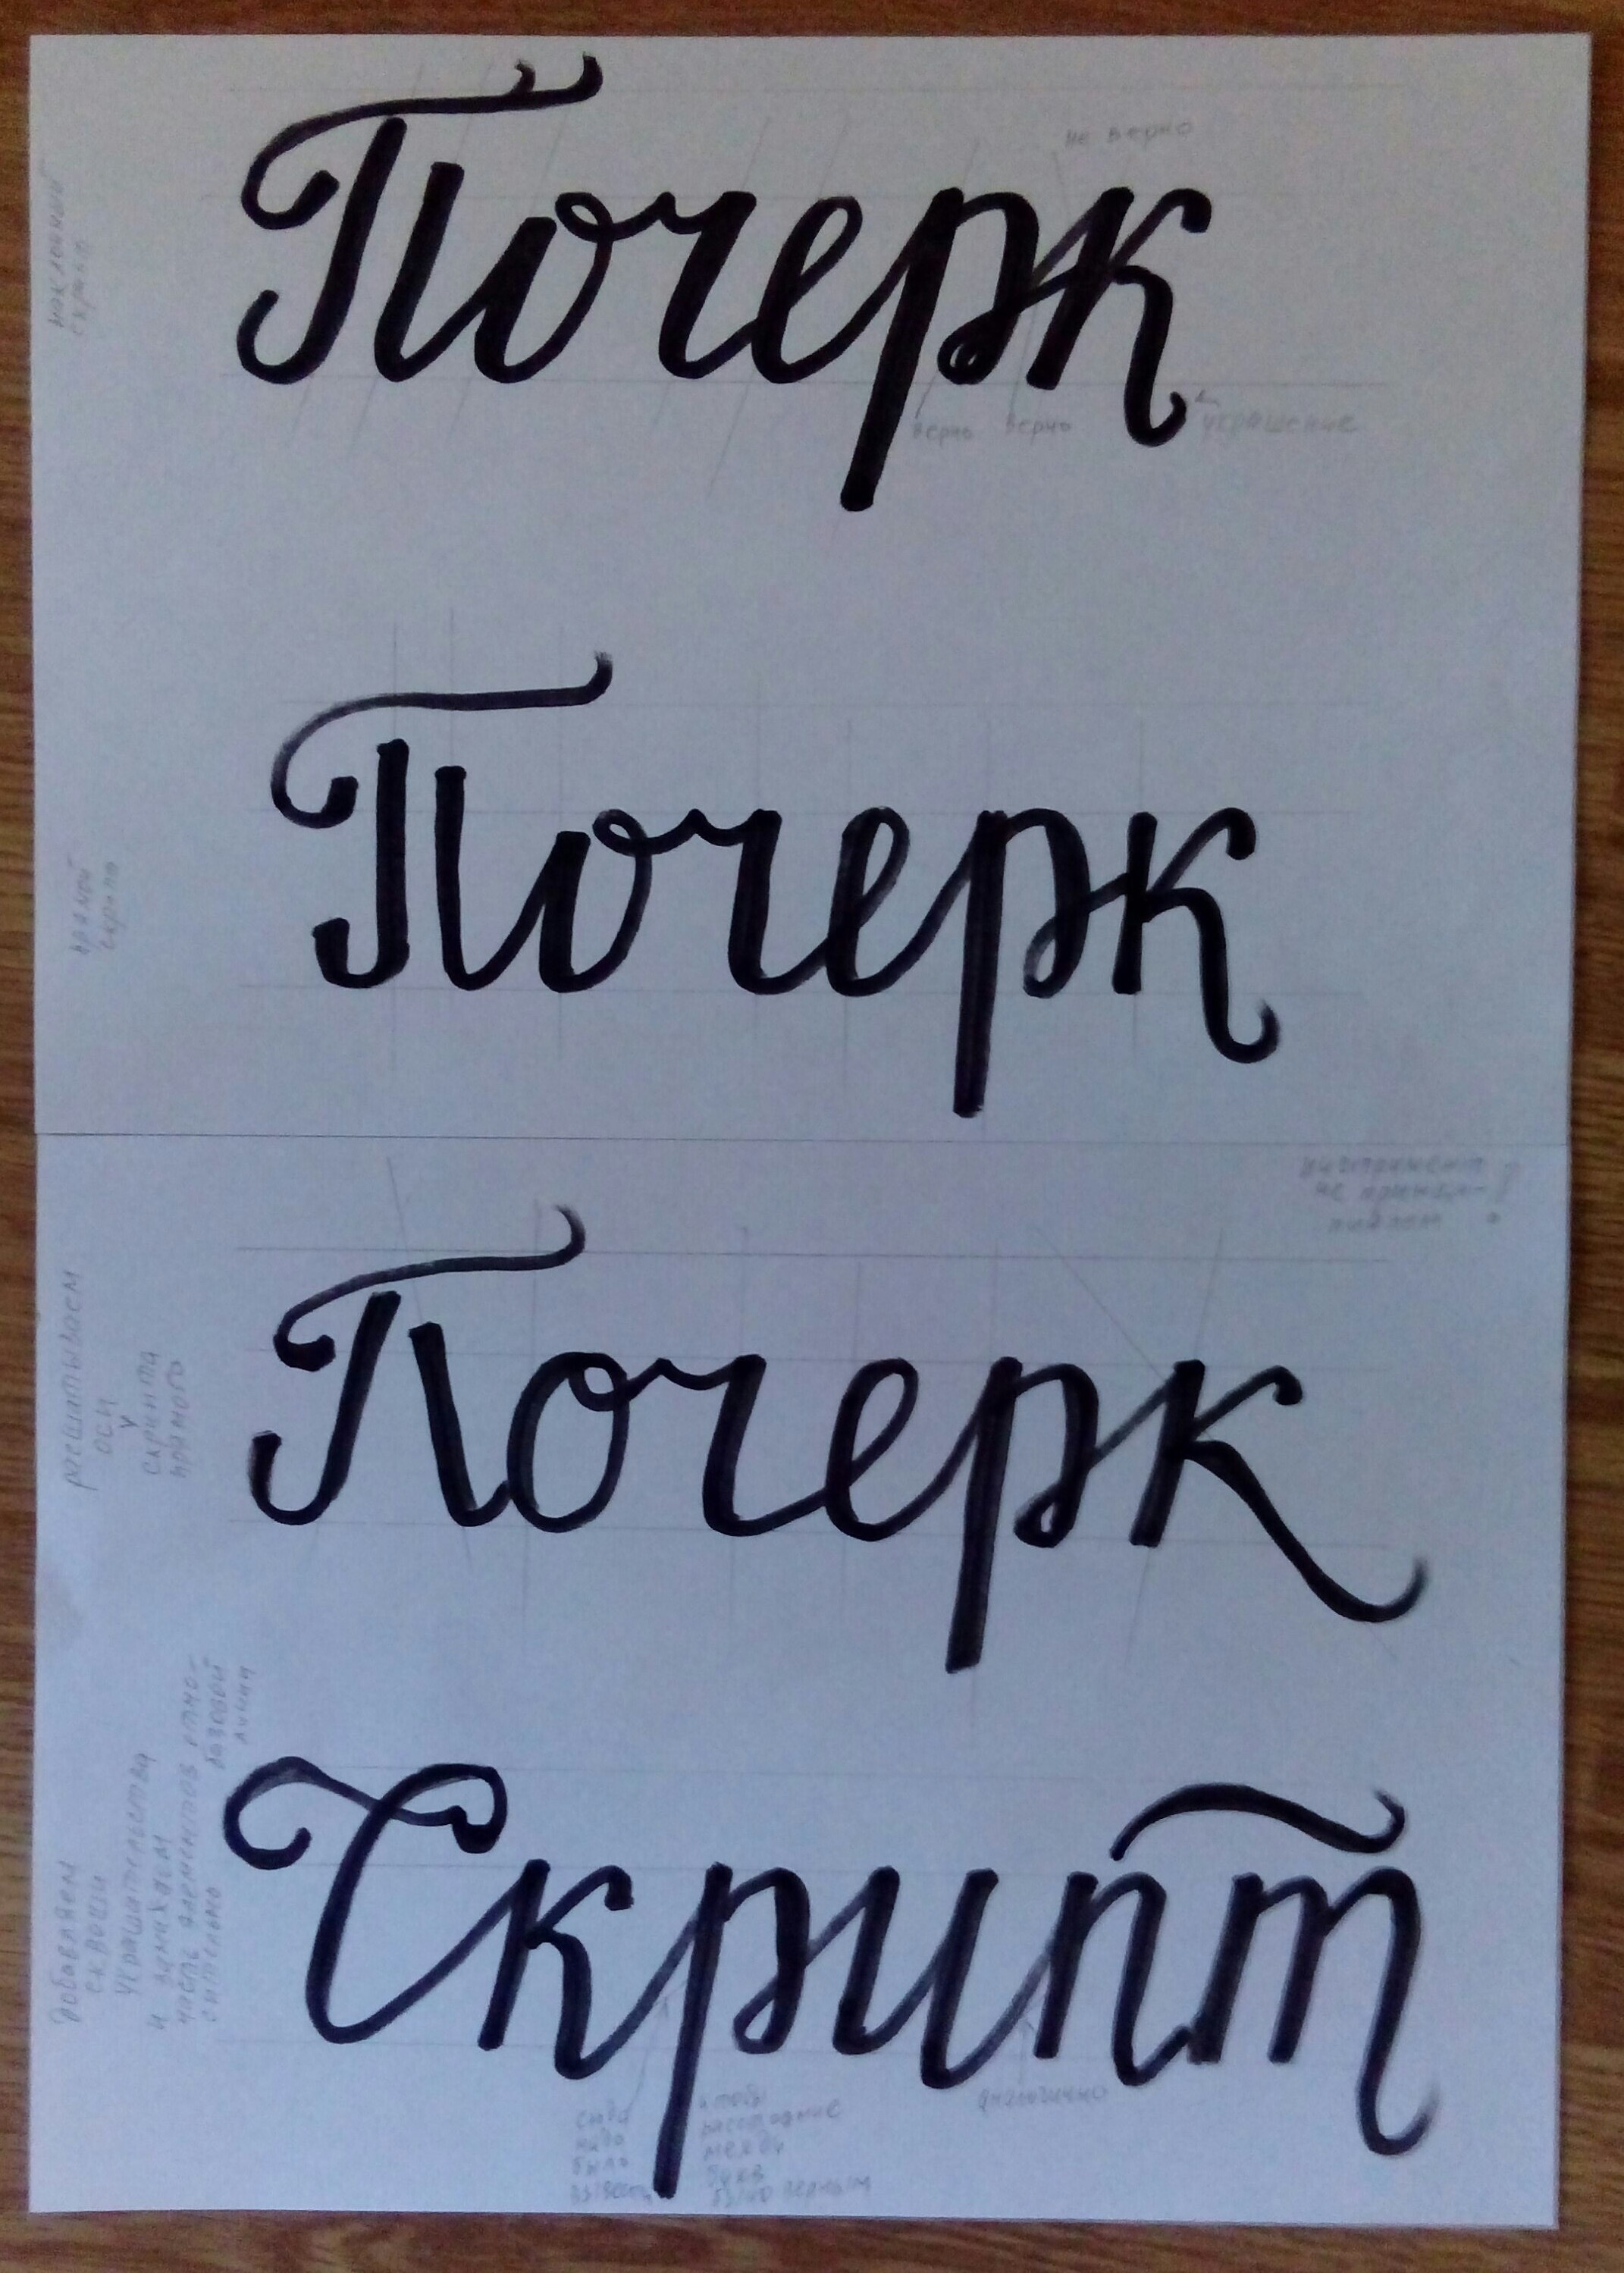 не верно
Почерк
наклонный
скрипт
верно верно украшение
Почерк
прямой
скрипт
инструмент
не принци-
пиален !
Почерк
расшатываем
оси
у
скрипта
прямого
Скрипт
добавляем
украшательства
и
часть элементов отно-
сительно базовой
линии
сюда
надо
было
чтобы
расстояние
между
букв
было верным
аналогично